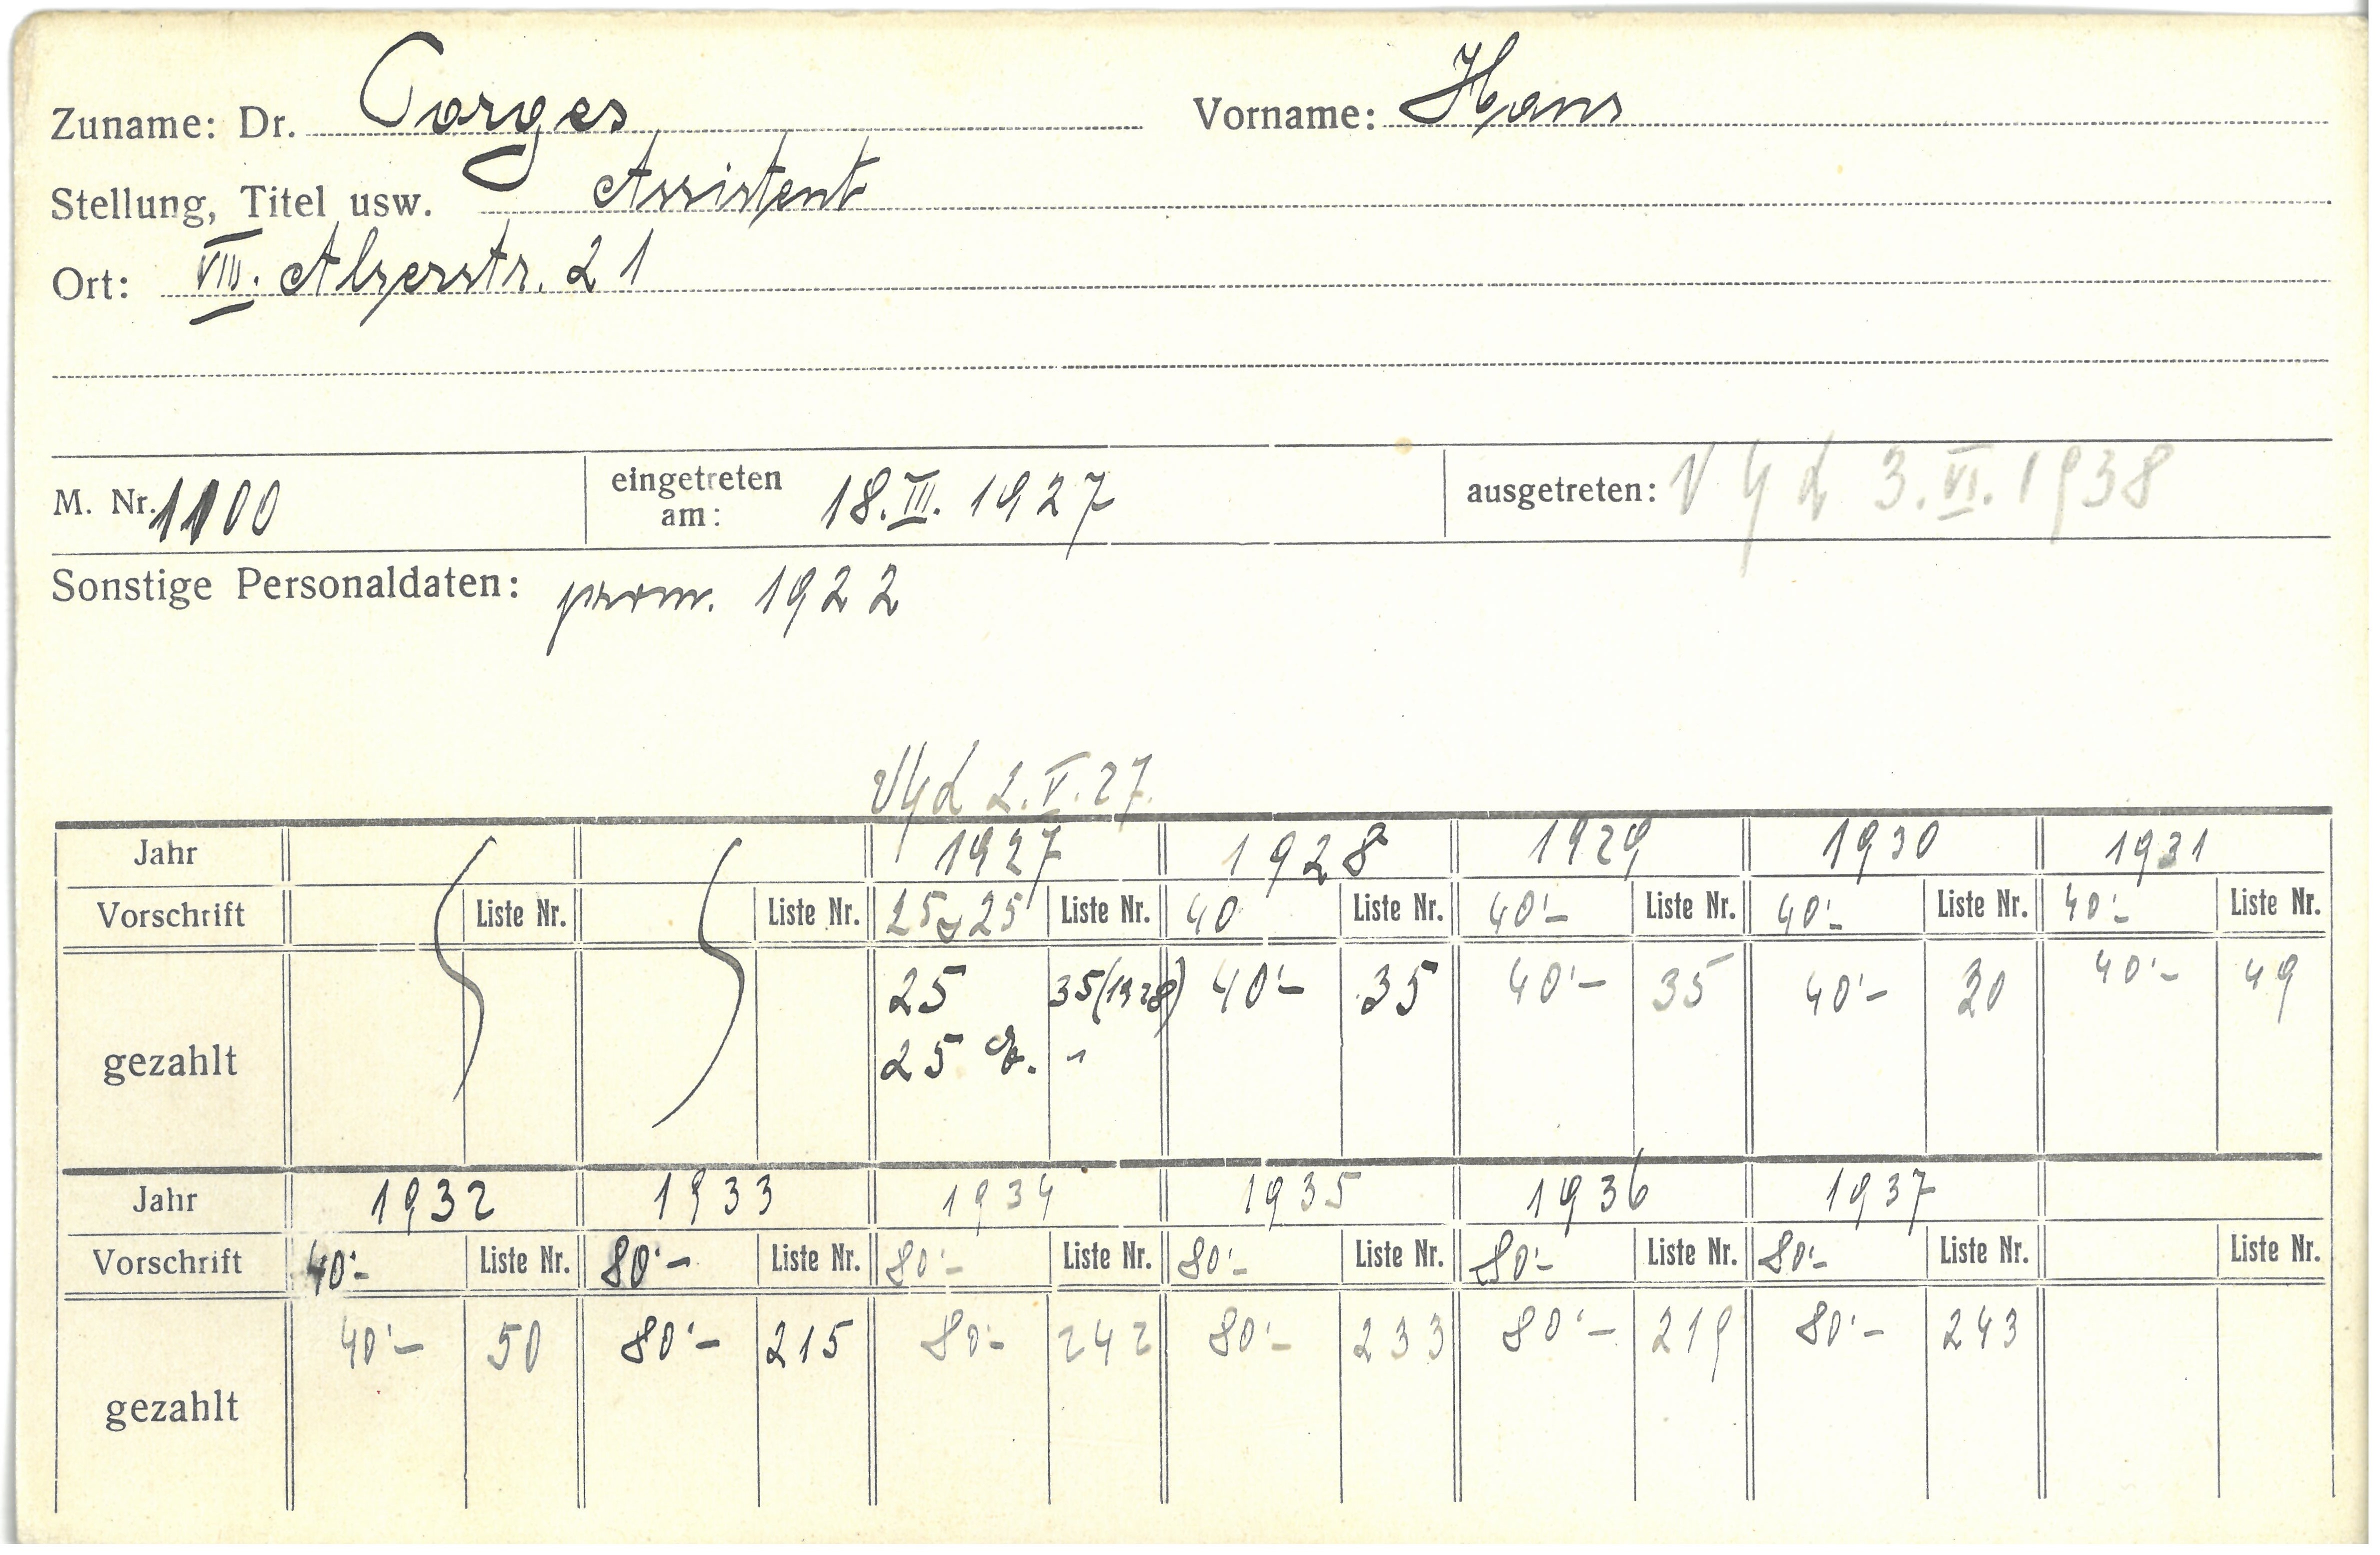 Zuname: Dr. Porges Vorname: Hans
Stellung, Titel usw. Assistent
Ort: VIII. Alserstr. 21
M. Nr. 1100 eingetreten am: 18. III. 1927 ausgetreten: VGd 3. VI. 1938
Sonstige Personaldaten: prom. 1922
VGd 2. V. 27.
Jahr 1927 1928 1929 1930 1931
Vorschrift Liste Nr. Liste Nr. 25 25 Liste Nr. 40 Liste Nr. 40'- Liste Nr. 40'- Liste Nr. 40'- Liste Nr.
gezahlt 25 35 (1928) 40'- 35 40'- 35 40'- 30 40'- 49
25
Jahr 1932 1933 1934 1935 1936 1937
Vorschrift 40'- Liste Nr. 80'- Liste Nr. 80'- Liste Nr. 80'- Liste Nr. 80'- Liste Nr. 80'- Liste Nr. Liste Nr.
gezahlt 40'- 50 80'- 215 80'- 242 80'- 233 80'- 219 80'- 243